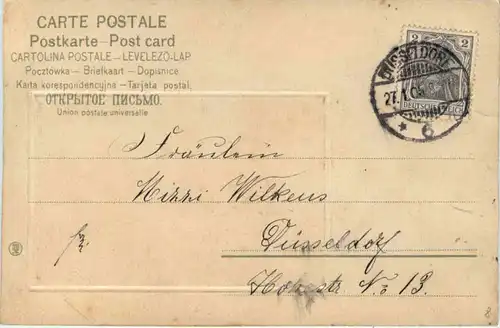 CARTE POSTALE
Postkarte - Post card
CARTOLINA POSTALE - LEVELEZO-LAP
Pocztówka - Briefkaart - Dopisnice
Karta korespondencyjna - Tarjeta postal.
ОТКРЫТОЕ ПИСЬМО.
Union postale universelle
2 2
DÜSSELDORF
27.
6
Fräulein
Mizzi Wilkens
Düsseldorf
str No 13.